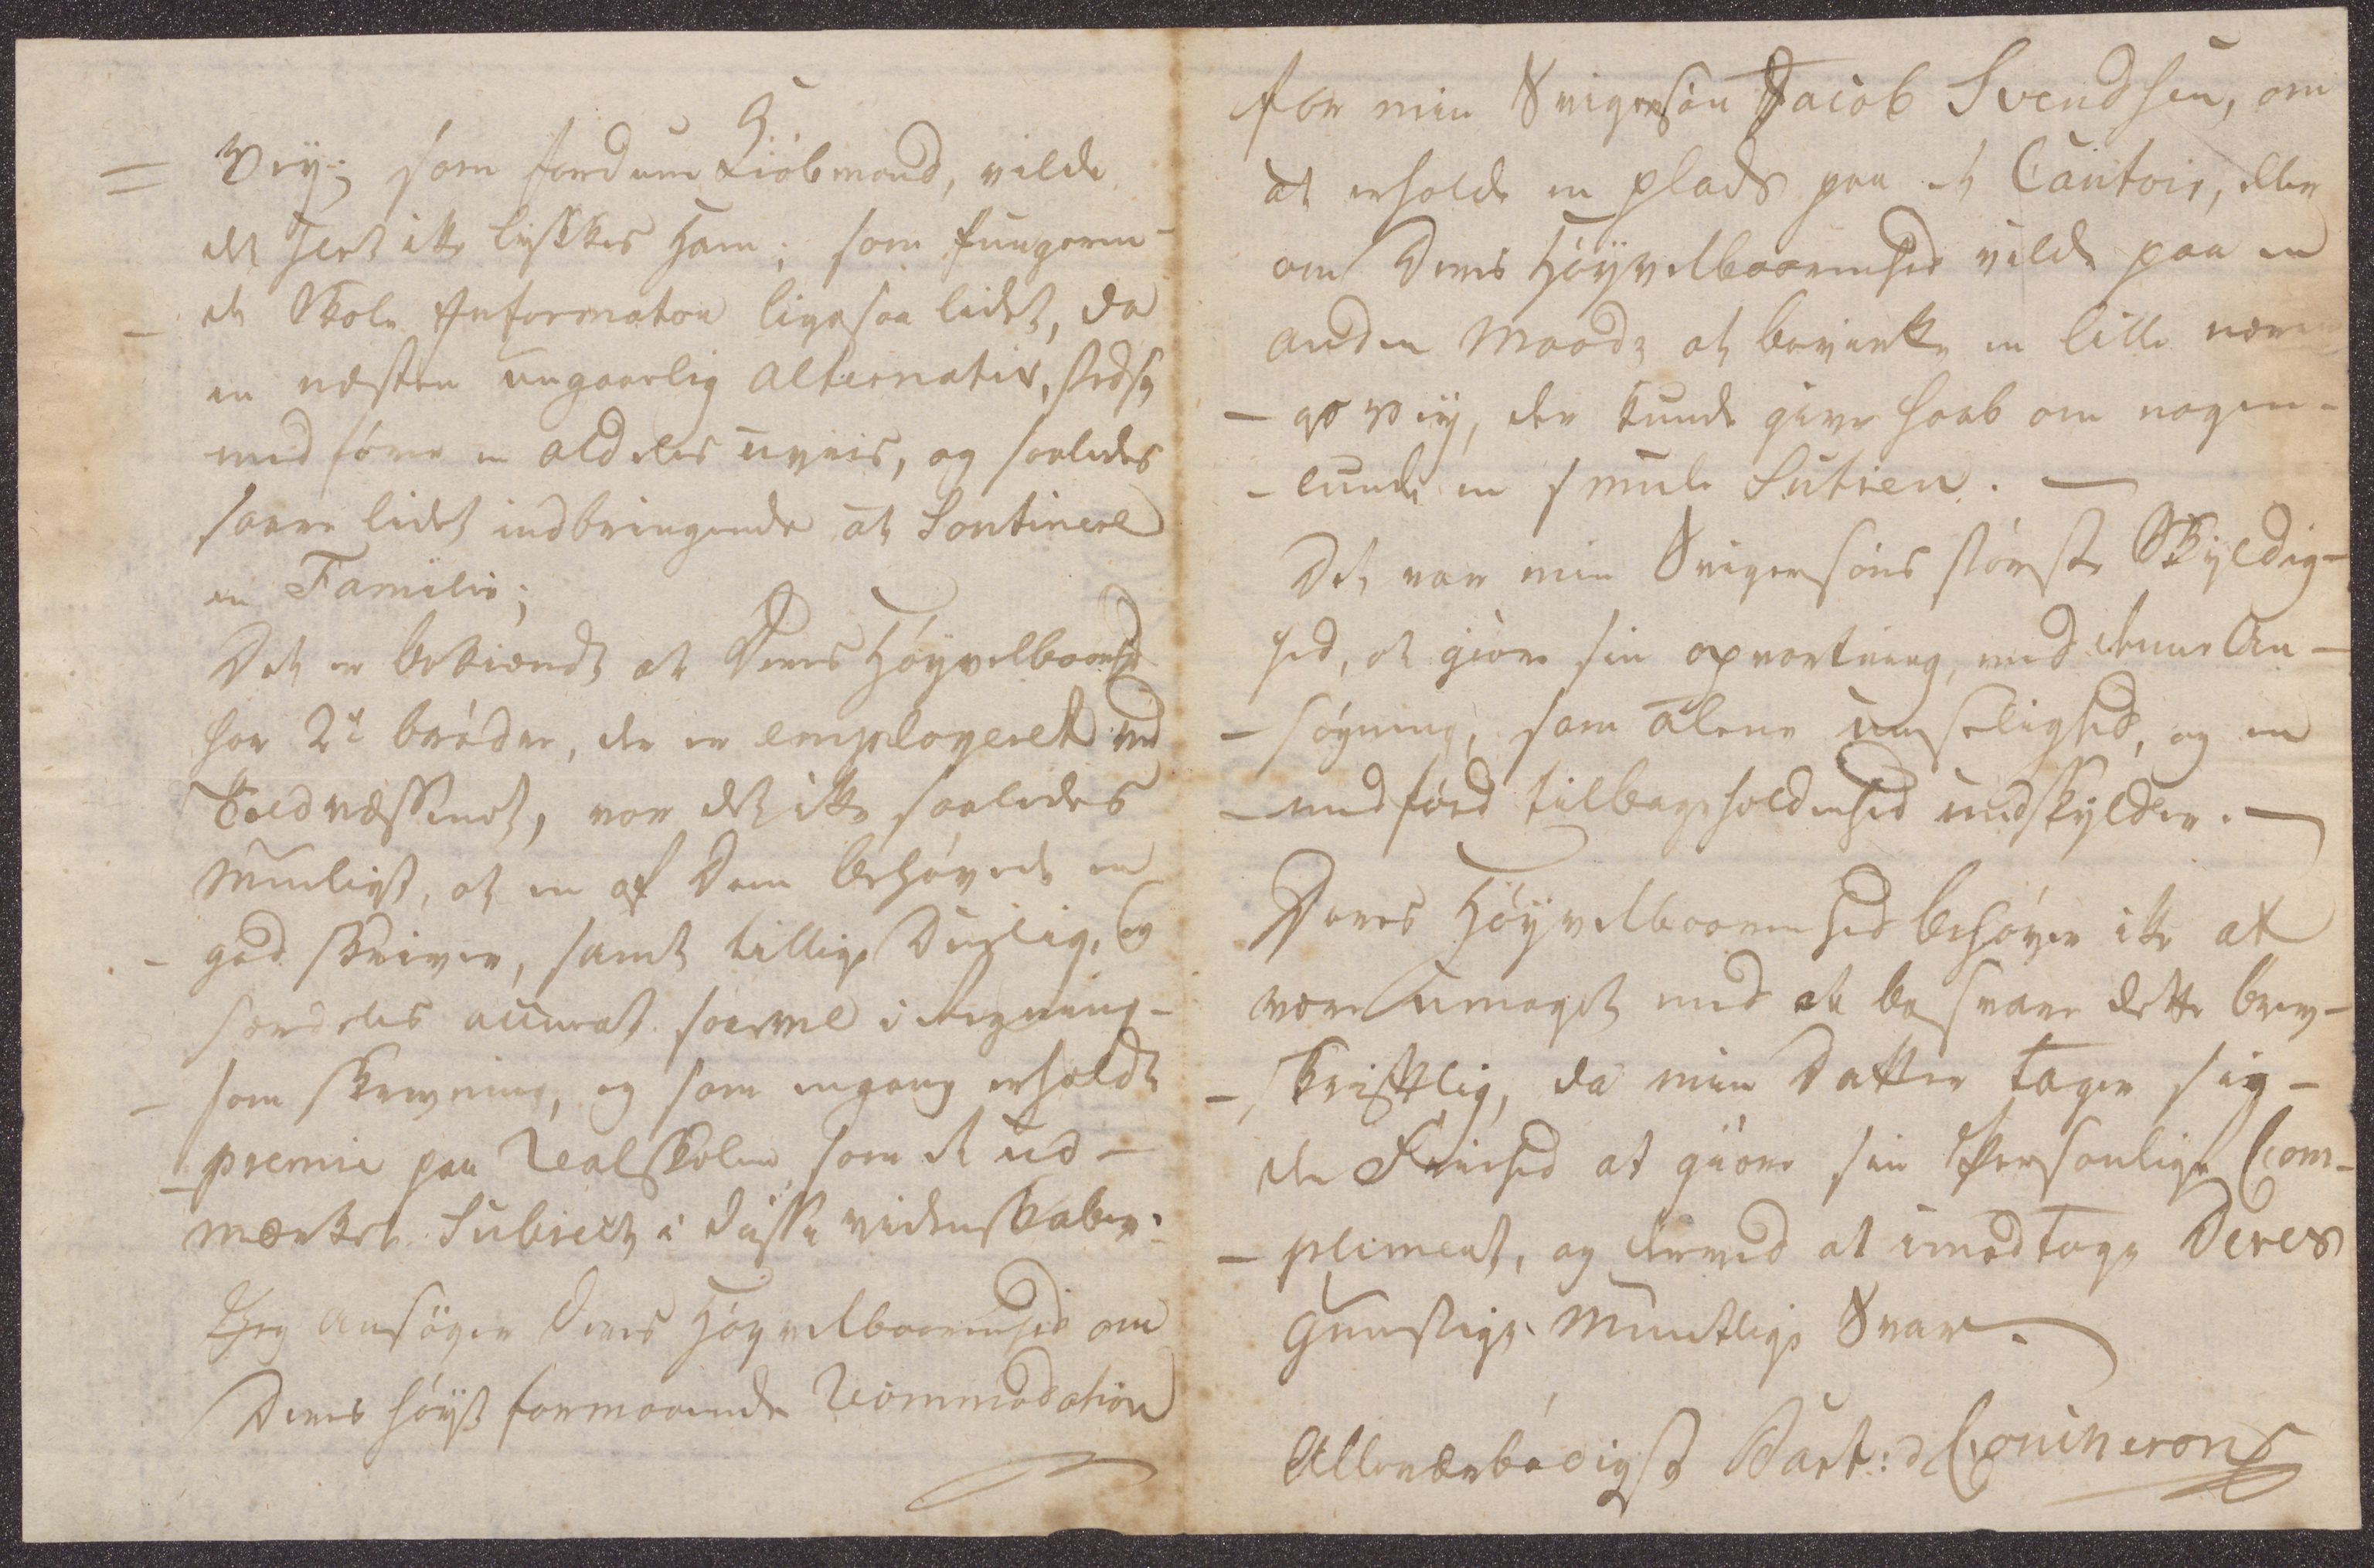 = Vey; som fordum Kiöbmand, vilde
det heel ikke lykkes Ham; som fungeren-
- de Skole Informator ligesaa lidet, da
en næsten ungaarlig Alternativ, stedse
medföre en aldeles uvis, og saaledes
saare lidet indbringende at Soutinere
en Familie;
Det er bekiendt at Deres Höyvelbaarenhed
har 2de brödre, der er employeret ved
Toldvæssenet, var det ikke saaledes
Mueligt, at en af Dem behövede en
- god skriver, samt tillige Duelig, og
særdeles accurat saavel i Regning-
- som skrivning, og som engang erholdt
- premie paa Realskolen som et ud-
mærket Subiect i disse videnskaber:
Jeg ansöger Deres Höyvelbaarenhed om
Deres höyst formaaende Recommendation
for min Svigersön Jacob Svendsen, om
at erholde en plads paa et Cantoir, eller
om Deres Höyvelbaarenhed vilde paa en
anden Maade at bevirke en lille nærin
- gs vey, der kunde give haab om nogen-
- lunde en smule Sutien. -
Det var min Svigersöns störste Skyldig-
hed, at giöre sin opvartning, med denne An-
- sögning, som alene undselighed, og en
- medföd tilbageholdenhed undskylder. -
Deres Höyvelbaarenhed behöver ikke at
være umaget med at besvare dette brev-
- skriftlig, da min Datter tager sig-
den Friehed at giöre sin Personlige Com-
- pliment, og derved at imodtage Deres
Gunstige Mundtlige Svar.
Allerærbödigst Bart: d Coninerons